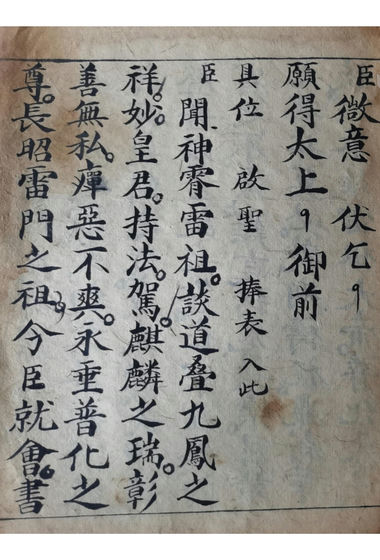 臣微意 伏乞
願得太上 御前
具位 啟聖 捧表入此
臣聞神霄雷祖。談道疊九鳳之
祥。妙皇君。持法。駕麒麟之瑞。彰
善無私。癉惡不爽。永垂普化之
尊。長昭雷門之祖。今臣就會。書